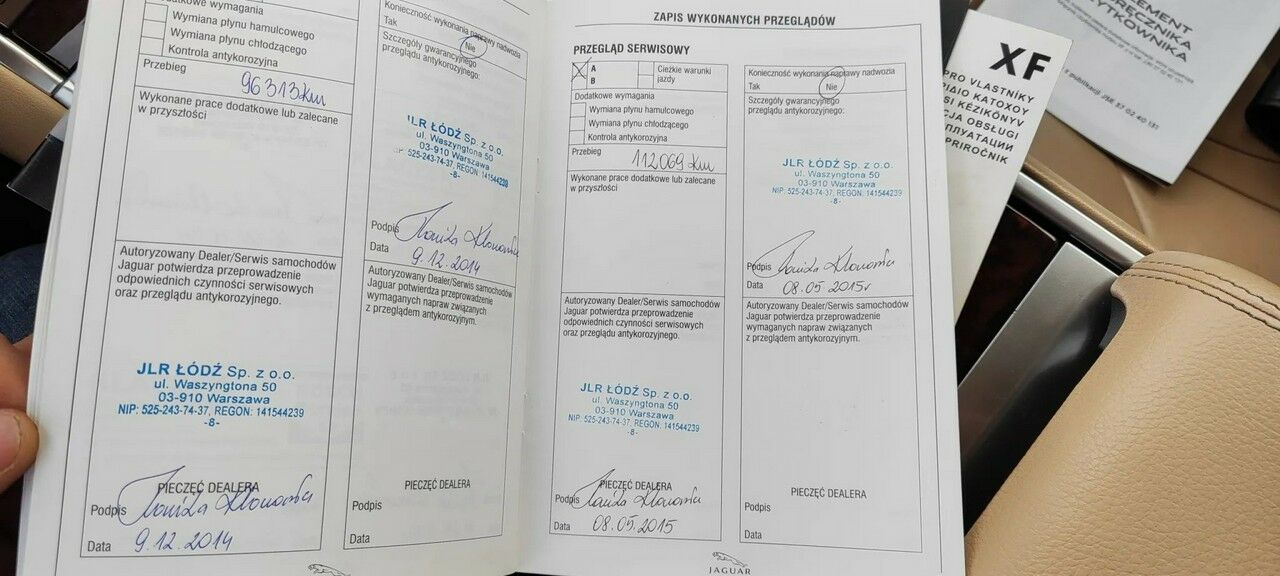 Dodatkowe wymagania
Wymiana płynu hamulcowego
Wymiana płynu chłodzącego
Kontrola antykorozyjna
Przebieg
96313 km
Wykonane prace dodatkowe lub zalecane
w przyszłości
Autoryzowany Dealer/Serwis samochodów
Jaguar potwierdza przeprowadzenie
odpowiednich czynności serwisowych
oraz przeglądu antykorozyjnego.
JLR ŁÓDŹ Sp. z o.o.
ul. Waszyngtona 50
03-910 Warszawa
NIP: 525-243-74-37, REGON: 141544239
-8-
PIECZĘĆ DEALERA
Podpis
Data 9.12.2014
Konieczność wykonania naprawy nadwozia
Tak Nie
Szczegóły gwarancyjnego
przeglądu antykorozyjnego:
JLR ŁÓDŹ Sp. z o.o.
ul. Waszyngtona 50
03-910 Warszawa
NIP: 525-243-74-37, REGON: 141544239
-8-
Podpis
Data 9.12.2014
Autoryzowany Dealer/Serwis samochodów
Jaguar potwierdza przeprowadzenie
wymaganych napraw związanych
z przeglądem antykorozyjnym.
PIECZĘĆ DEALERA
Podpis
Data
ZAPIS WYKONANYCH PRZEGLĄDÓW
PRZEGLĄD SERWISOWY
A
B
Ciężkie warunki
jazdy
Dodatkowe wymagania
Wymiana płynu hamulcowego
Wymiana płynu chłodzącego
Kontrola antykorozyjna
Przebieg 112069 km
Wykonane prace dodatkowe lub zalecane
w przyszłości
Autoryzowany Dealer/Serwis samochodów
Jaguar potwierdza przeprowadzenie
odpowiednich czynności serwisowych
oraz przeglądu antykorozyjnego.
JLR ŁÓDŹ Sp. z o.o.
ul. Waszyngtona 50
03-910 Warszawa
NIP: 525-243-74-37, REGON: 141544239
-8-
PIECZĘĆ DEALERA
Podpis
Data 08.05.2015
Konieczność wykonania naprawy nadwozia
Tak Nie
Szczegóły gwarancyjnego
przeglądu antykorozyjnego:
JLR ŁÓDŹ Sp. z o.o.
ul. Waszyngtona 50
03-910 Warszawa
NIP: 525-243-74-37, REGON: 141544239
-8-
Podpis
Data 08.05.2015r
Autoryzowany Dealer/Serwis samochodów
Jaguar potwierdza przeprowadzenie
wymaganych napraw związanych
z przeglądem antykorozyjnym.
PIECZĘĆ DEALERA
Podpis
Data
JAGUAR
XF
PRO VLASTNÍKY
ΙΔΙΟ ΚΑΤΟΧΟΥ
SI KÉZIKÖNYV
CJA OBSŁUGI
ПЛУАТАЦИИ
PRIROČNIK